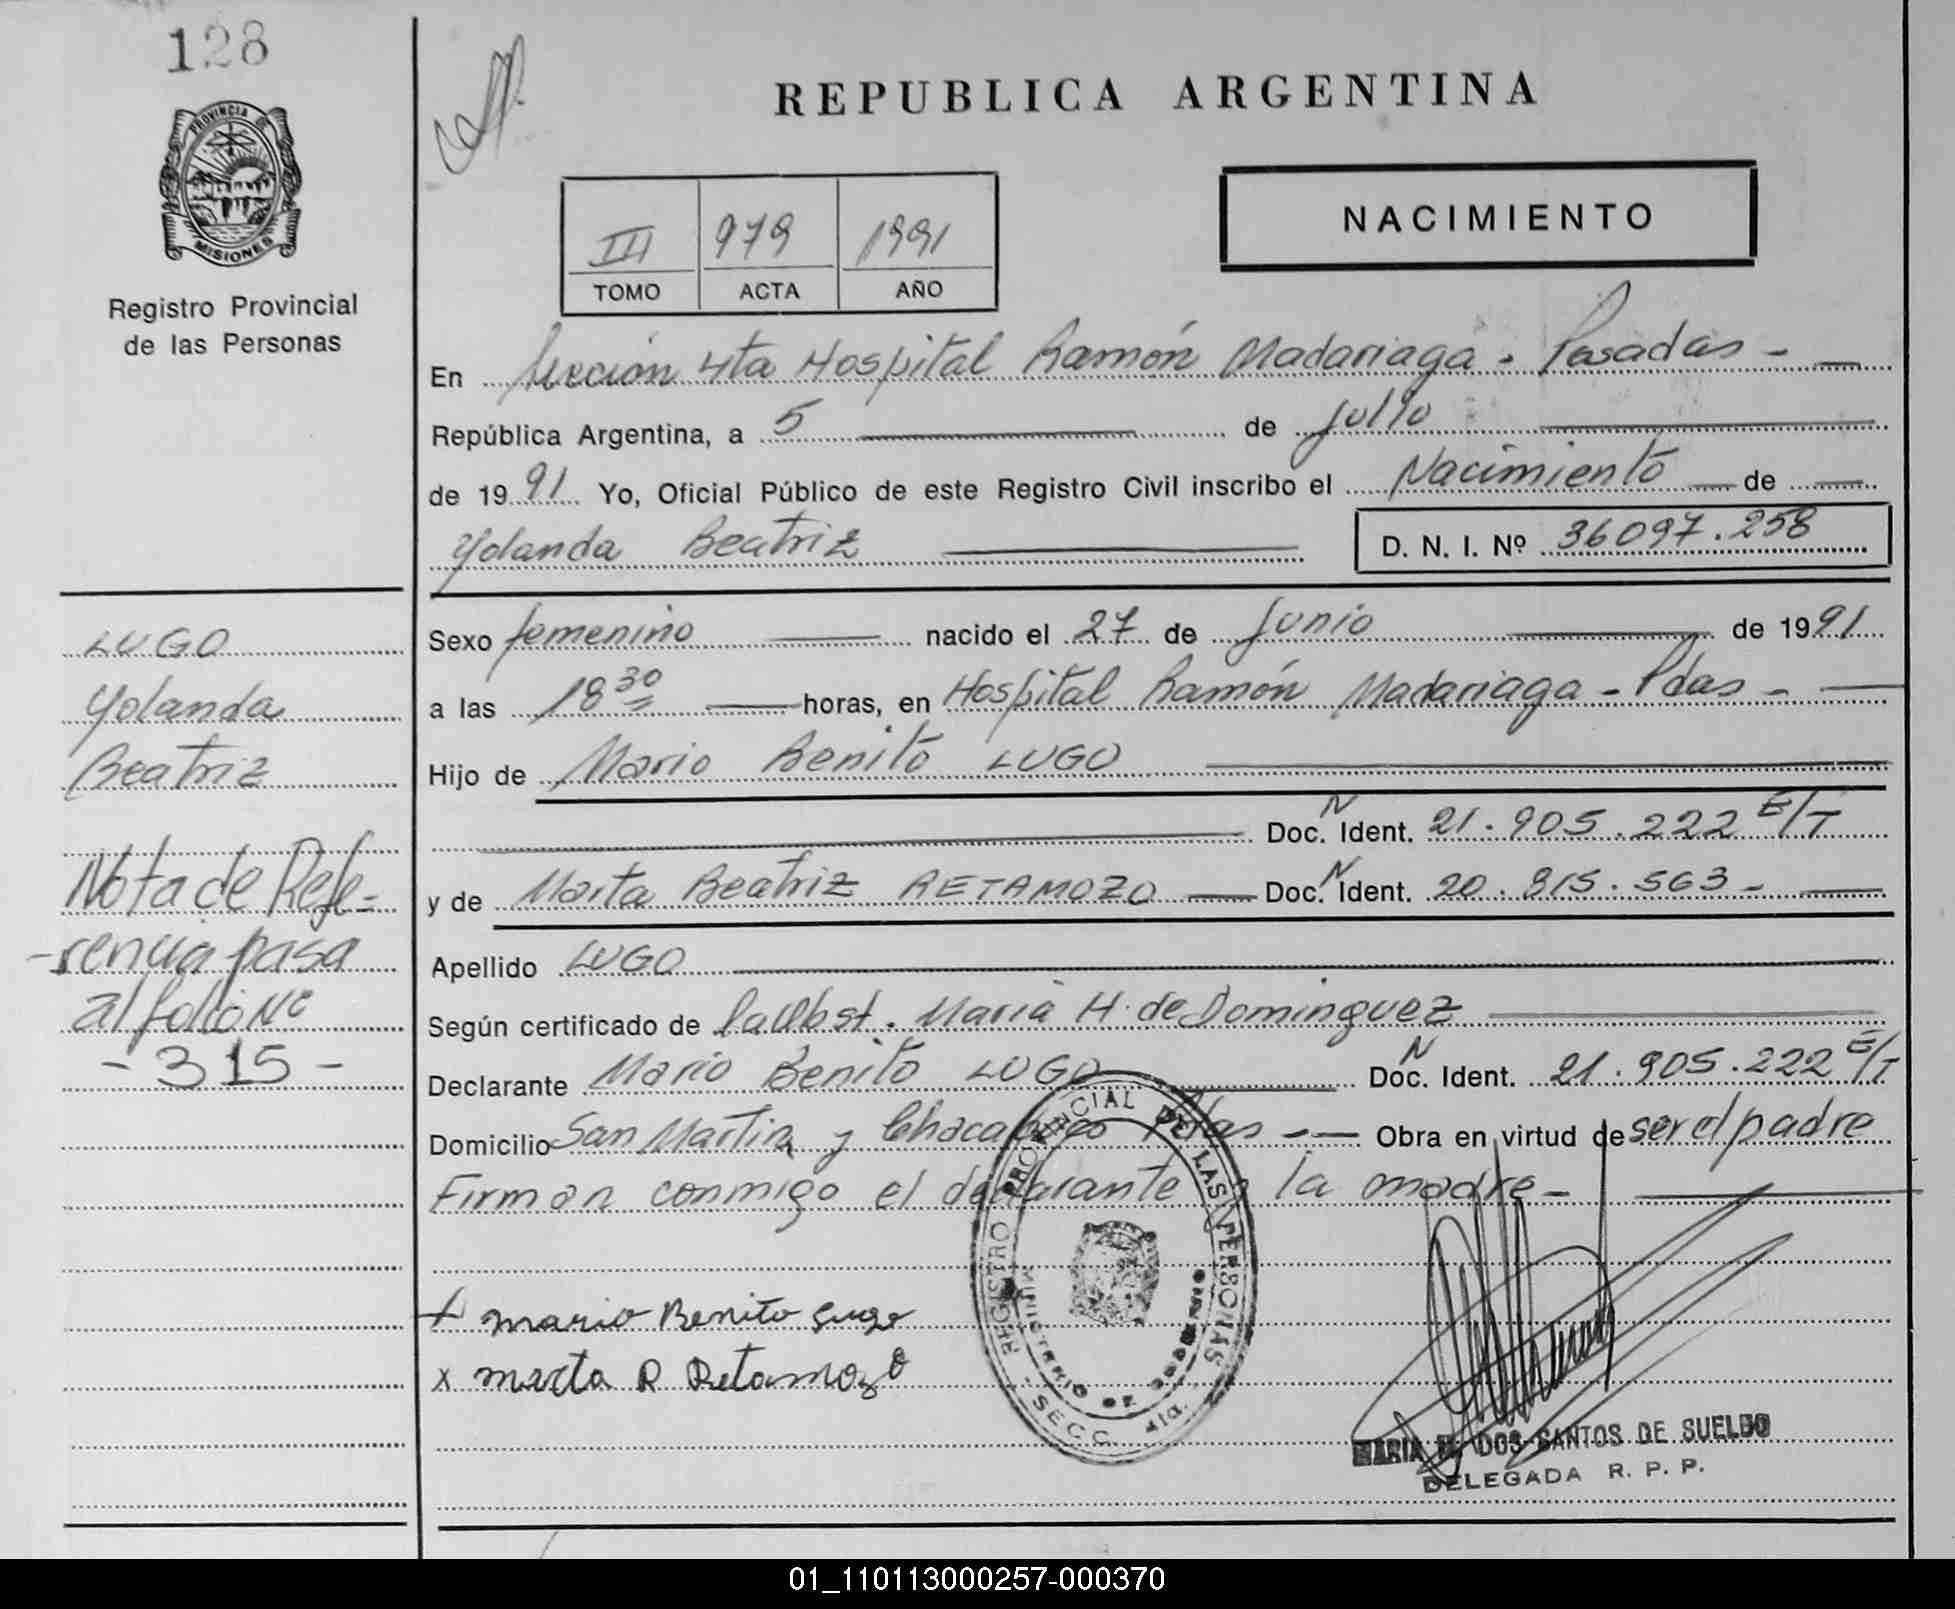 128
PROVINCIA DE
MISIONES
Registro Provincial
de las Personas
REPUBLICA ARGENTINA
III 979 1991
TOMO ACTA AÑO
NACIMIENTO
En Sección 4ta Hospital Ramón Madariaga - Posadas -
República Argentina, a 5 de julio
de 1991 Yo, Oficial Público de este Registro Civil inscribo el Nacimiento de
Yolanda Beatriz D. N. I. Nº 36097.258
Sexo femenino nacido el 27 de Junio de 1991
a las 18 30 horas, en Hospital Ramón Madariaga - Pdas -
Hijo de Mario Benito LUGO
Doc. N Ident. 21.905.222 E/T
y de Marta Beatriz RETAMOZO Doc. N Ident. 20.815.563 -
Apellido LUGO
Según certificado de la Obst. Maria H. de Dominguez
Declarante Mario Benito LUGO Doc. N Ident. 21.905.222 E/T
Domicilio San Martin y Chacabuco Pdas - Obra en virtud de ser el padre
Firman conmigo el declarante y la madre -
x Mario Benito Lugo
x Marta R Retamozo
LUGO
Yolanda
Beatriz
Nota de Refe-
-rencia pasa
al folio Nº
- 315 -
REGISTRO PROVINCIAL DE LAS PERSONAS
MINISTERIO DE GOBIERNO
SECC. 4ta.
MARIA DOS SANTOS DE SUELDO
DELEGADA R. P. P.
01_110113000257-000370